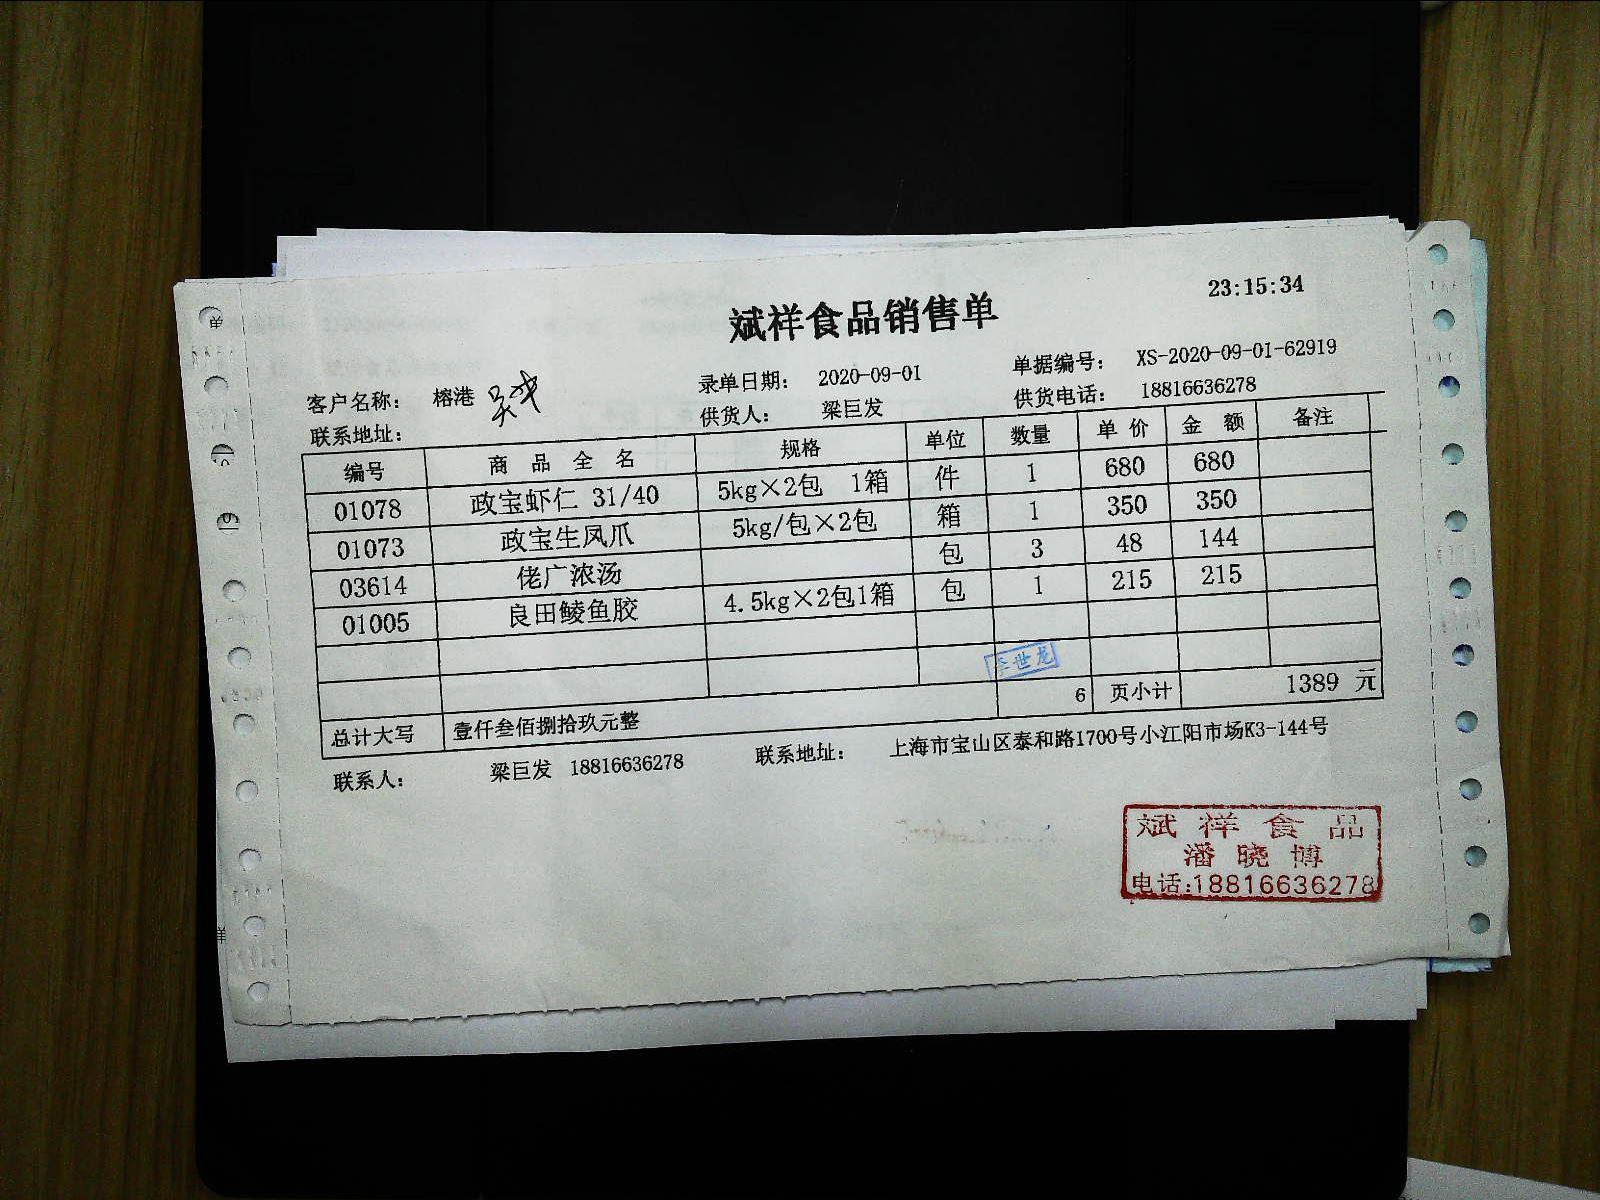 23:15:34
斌祥食品销售单
客户名称： 榕港 录单日期： 2020-09-01 单据编号： XS-2020-09-01-62919
联系地址： 供货人： 梁巨发 供货电话： 18816636278
编号 商 品 全 名 规格 单位 数量 单 价 金 额 备注
01078 政宝虾仁 31/40 5kg×2包 1箱 件 1 680 680
01073 政宝生凤爪 5kg/包×2包 箱 1 350 350
03614 佬广浓汤 包 3 48 144
01005 良田鲮鱼胶 4.5kg×2包1箱 包 1 215 215
世龙
6 页小计 1389 元
总计大写 壹仟叁佰捌拾玖元整
联系人： 梁巨发 18816636278 联系地址： 上海市宝山区泰和路1700号小江阳市场K3-144号
斌祥食品
潘晓博
电话:18816636278